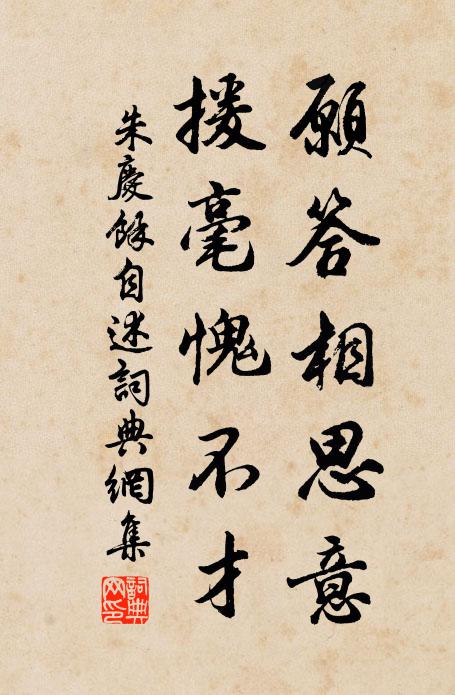 願答相思意
援毫愧不才
朱慶餘自述詞典網集
詞典网印